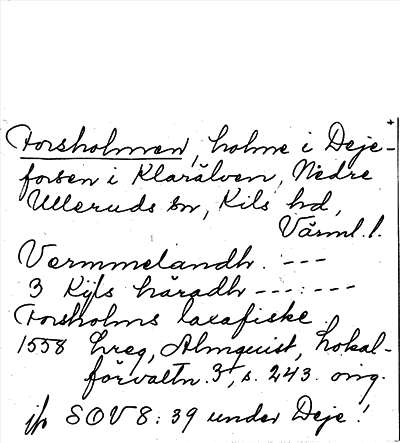 Forsholmen, holme i Deje-
forsen i Klarälven, Nedre
Ulleruds sn, Kils hd,
Värml. l.
Vermmelandh. ---
3 Kijls häradh ---:---
Forsholms laxafiske.
1558 hreg, Almquist, Lokal-
förvaltn. 3, s. 243. orig.
jfr SOV 8: 39 under Deje!